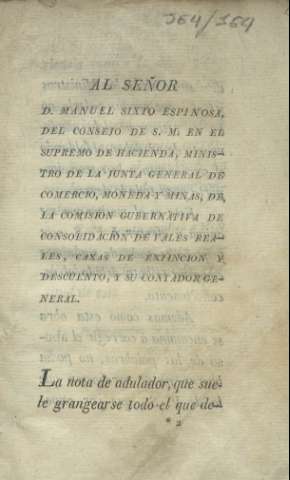 164/164
AL SEÑOR
D. MANUEL SIXTO ESPINOSA,
DEL CONSEJO DE S. M. EN EL
SUPREMO DE HACIENDA, MINIS-
TRO DE LA JUNTA GENERAL DE
COMERCIO, MONEDA Y MINAS, DE
LA COMISION GUBERNATIVA DE
CONSOLIDACION DE VALES REA-
LES, CAXAS DE EXTINCION Y
DESCUENTO, Y SU CONTADOR GE-
NERAL.
La nota de adulador, que sue-
le grangearse todo el que de-
* 2